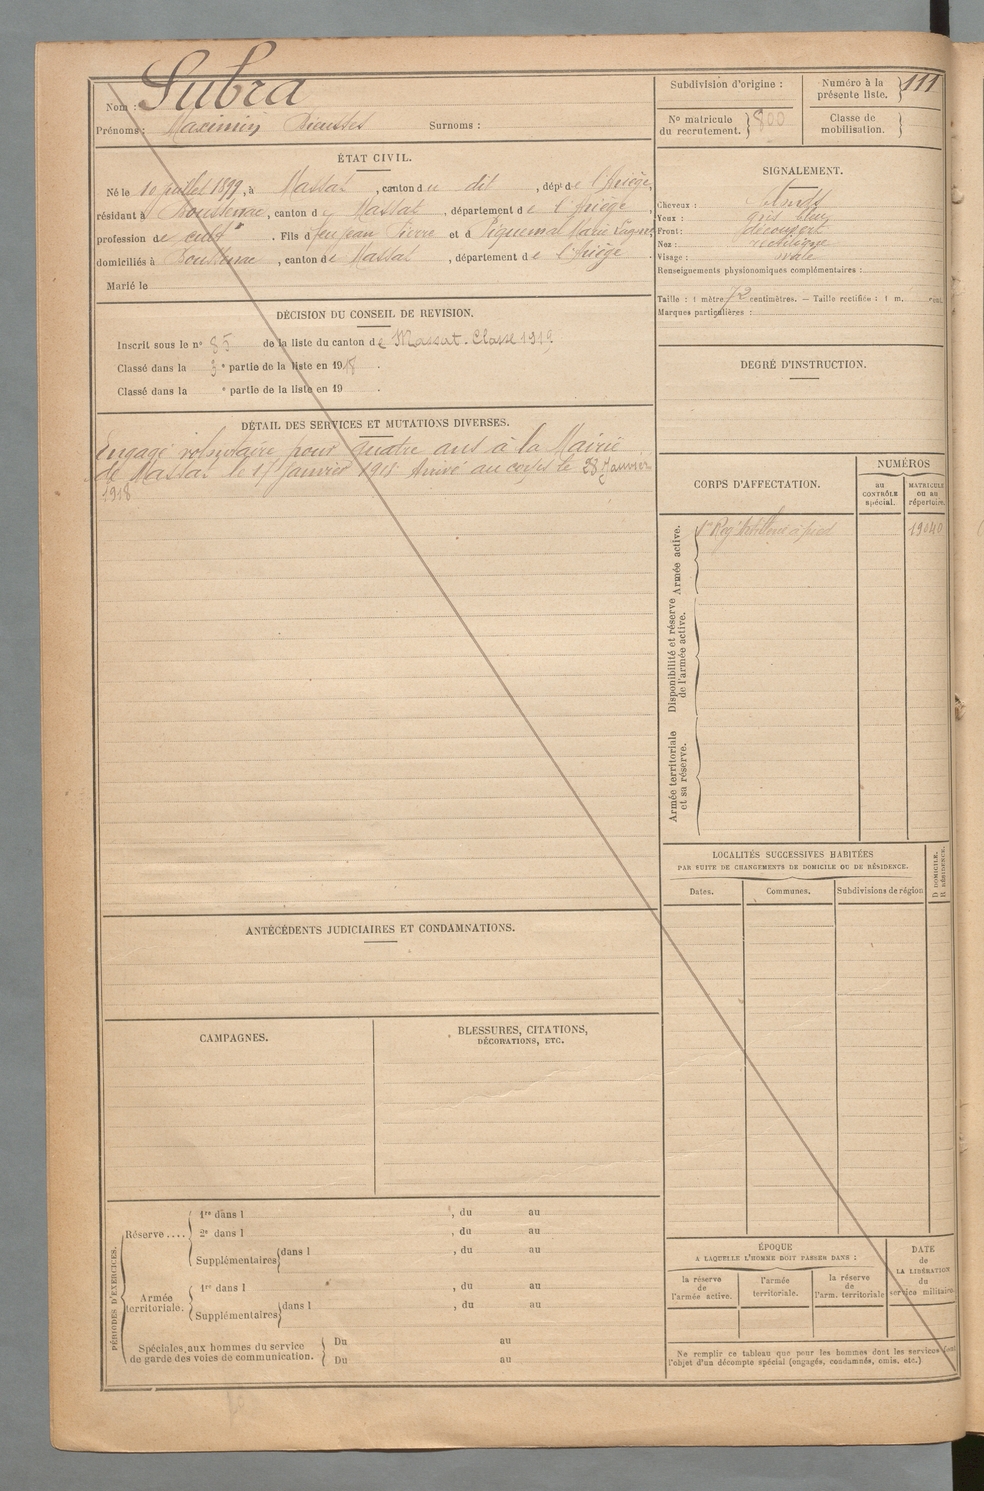 Nom : Subra
Prénoms : Maximin Surnoms :
ÉTAT CIVIL.
Né le 10 juillet 1899, à Massat, canton du dit, dépt de l'Ariège,
résidant à Boussenac, canton de Massat, département de l'Ariège,
profession de cultr. Fils d feu Jean Pierre et d Piquemal Marie
domiciliés à Boussenac, canton de Massat, département de l'Ariège.
Marié le
DÉCISION DU CONSEIL DE REVISION.
Inscrit sous le no 85 de la liste du canton de Massat. Classe 1919
Classé dans la 3e partie de la liste en 1918.
Classé dans la e partie de la liste en 19 .
DÉTAIL DES SERVICES ET MUTATIONS DIVERSES.
Engagé volontaire pour quatre ans à la Mairie
de Massat le 17 Janvier Arrivé au corps le 28 Janvier
1918
ANTÉCÉDENTS JUDICIAIRES ET CONDAMNATIONS.
CAMPAGNES.
BLESSURES, CITATIONS,
DÉCORATIONS, ETC.
PÉRIODES D'EXERCICES.
Réserve ....
1re dans l , du au
2e dans l , du au
Supplémentaires dans l , du au
Armée
territoriale.
1re dans l , du au
Supplémentaires dans l , du au
Spéciales aux hommes du service
de garde des voies de communication.
Du au
Du au
Subdivision d'origine :
Numéro à la
présente liste. 111
No matricule
du recrutement. 800
Classe de
mobilisation.
SIGNALEMENT.
Cheveux :
Yeux : gris bleu
Front : découvert
Nez : rectiligne
Visage : ovale
Renseignements physionomiques complémentaires :
Taille : 1 mètre 72 centimètres. — Taille rectifiée : 1 m. cent.
Marques particulières :
DEGRÉ D'INSTRUCTION.
CORPS D'AFFECTATION.
NUMÉROS
au
CONTRÔLE
spécial.
MATRICULE
ou au
répertoire.
Armée active.
à pied 19040
Disponibilité et réserve
de l'armée active.
Armée territoriale
et sa réserve.
LOCALITÉS SUCCESSIVES HABITÉES
PAR SUITE DE CHANGEMENTS DE DOMICILE OU DE RÉSIDENCE.
Dates. Communes. Subdivisions de région
D DOMICILE.
R RÉSIDENCE.
ÉPOQUE
A LAQUELLE L'HOMME DOIT PASSER DANS :
la réserve
de
l'armée active.
l'armée
territoriale.
la réserve
de
l'arm. territoriale
DATE
de
LA LIBÉRATION
du
service militaire.
Ne remplir ce tableau que pour les hommes dont les services font
l'objet d'un décompte spécial (engagés, condamnés, omis, etc.)